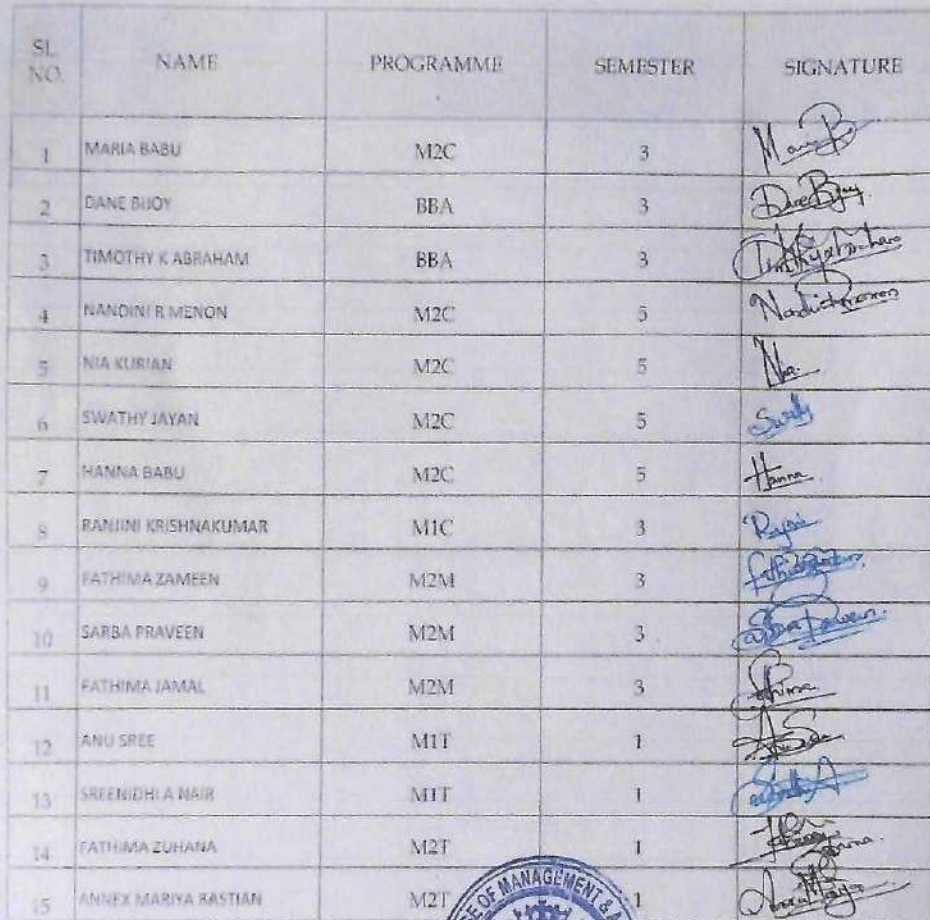 SL. NO. NAME PROGRAMME SEMESTER SIGNATURE
1 MARIA BABU M2C 3 Maria B
2 DANE BIJOY BBA 3 Dane Bijoy
3 TIMOTHY K ABRAHAM BBA 3 Timothy Abraham
4 NANDINI R MENON M2C 5
5 NIA KURIAN M2C 5 Nia
6 SWATHY JAYAN M2C 5 Swathy
7 HANNA BABU M2C 5 Hanna
8 RANJINI KRISHNAKUMAR M1C 3
9 FATHIMA ZAMEEN M2M 3
10 SARBA PRAVEEN M2M 3
11 FATHIMA JAMAL M2M 3 Fathima
12 ANU SREE M1T 1
13 SREENIDHI A NAIR M1T 1
14 FATHIMA ZUHANA M2T 1
15 ANNEX MARIYA BASTIAN M2T 1
OF MANAGEMENT &